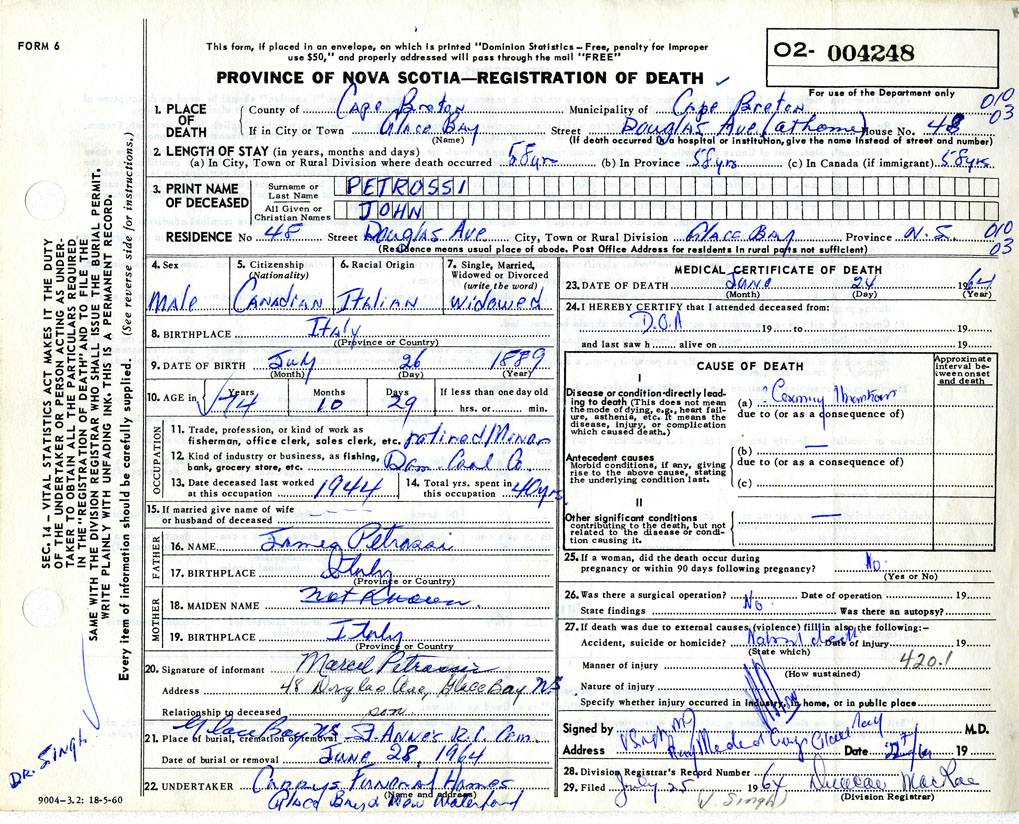 FORM 6
This form, if placed in an envelope, on which is printed "Dominion Statistics—Free, penalty for improper
use $50," and properly addressed will pass through the mail "FREE"
O2- 004248
PROVINCE OF NOVA SCOTIA—REGISTRATION OF DEATH
For use of the Department only
010
03
1. PLACE OF DEATH
County of Cape Breton Municipality of Cape Breton
If in City or Town Glace Bay Street Douglas Ave (at home) House No. 48
(Name) (If death occurred in a hospital or institution, give name instead of street and number)
2. LENGTH OF STAY (in years, months and days)
(a) In City, Town or Rural Division where death occurred 58 yrs (b) In Province 58 yrs (c) In Canada (if immigrant) 58 yrs
3. PRINT NAME OF DECEASED
Surname or Last Name PETROSSI
All Given or Christian Names JOHN
RESIDENCE No 48 Street Douglas Ave City, Town or Rural Division Glace Bay Province N.S. 010
(Residence means usual place of abode. Post Office Address for residents in rural parts not sufficient) 03
4. Sex Male
5. Citizenship (Nationality) Canadian
6. Racial Origin Italian
7. Single, Married, Widowed or Divorced (write the word) Widowed
8. BIRTHPLACE Italy
(Province or Country)
9. DATE OF BIRTH July 26 1889
(Month) (Day) (Year)
10. AGE in Years 74 Months 10 Days 29 If less than one day old hrs. or min.
OCCUPATION
11. Trade, profession, or kind of work as
fisherman, office clerk, sales clerk, etc. retired/Miner
12. Kind of industry or business, as fishing,
bank, grocery store, etc. Dom. Coal Co.
13. Date deceased last worked at this occupation 1944
14. Total yrs. spent in this occupation 40 yrs.
15. If married give name of wife
or husband of deceased
FATHER
16. NAME James Petrossi
17. BIRTHPLACE Italy
(Province or Country)
MOTHER
18. MAIDEN NAME Not Known.
19. BIRTHPLACE Italy
(Province or Country)
20. Signature of informant Marcel Petrossi
Address 48 Douglas Ave, Glace Bay N.S.
Relationship to deceased son
Glace Bay NS St Anne's R.C. Cem.
21. Place of burial, cremation or removal
Date of burial or removal June 28, 1964
22. UNDERTAKER Currys Funeral Homes
(Name and address)
Glace Bay & New Waterford
MEDICAL CERTIFICATE OF DEATH
23. DATE OF DEATH June 24 1964
(Month) (Day) (Year)
24. I HEREBY CERTIFY that I attended deceased from:
D.O.A 19 to 19
and last saw h alive on 19
CAUSE OF DEATH
Approximate interval between onset and death
I
Disease or condition directly leading to death (This does not mean the mode of dying, e.g., heart failure, asthenia, etc. It means the disease, injury, or complication which caused death.)
(a)
due to (or as a consequence of)
Antecedent causes
Morbid conditions, if any, giving rise to the above cause, stating the underlying condition last.
(b) —
due to (or as a consequence of)
(c)
II
Other significant conditions
contributing to the death, but not related to the disease or condition causing it. —
25. If a woman, did the death occur during
pregnancy or within 90 days following pregnancy? No.
(Yes or No)
26. Was there a surgical operation? No. Date of operation 19
State findings Was there an autopsy?
27. If death was due to external causes (violence) fill in also the following:—
Accident, suicide or homicide? Natural death Date of injury 19
(State which) 420.1
Manner of injury
(How sustained)
Nature of injury
Specify whether injury occurred in industry, in home, or in public place
Signed by M.D.
Address Date 19
28. Division Registrar's Record Number
29. Filed July 25 1964 Duncan MacRae
(J. Singh) (Division Registrar)
SEC. 14 – VITAL STATISTICS ACT MAKES IT THE DUTY
OF THE UNDERTAKER OR PERSON ACTING AS UNDER-
TAKER TO OBTAIN ALL THE PARTICULARS REQUIRED
IN THE "REGISTRATION OF DEATH" AND TO FILE THE
SAME WITH THE DIVISION REGISTRAR WHO SHALL ISSUE THE BURIAL PERMIT.
WRITE PLAINLY WITH UNFADING INK. THIS IS A PERMANENT RECORD.
Every item of information should be carefully supplied. (See reverse side for instructions.)
DR. SINGH
9004–3.2: 18-5-60